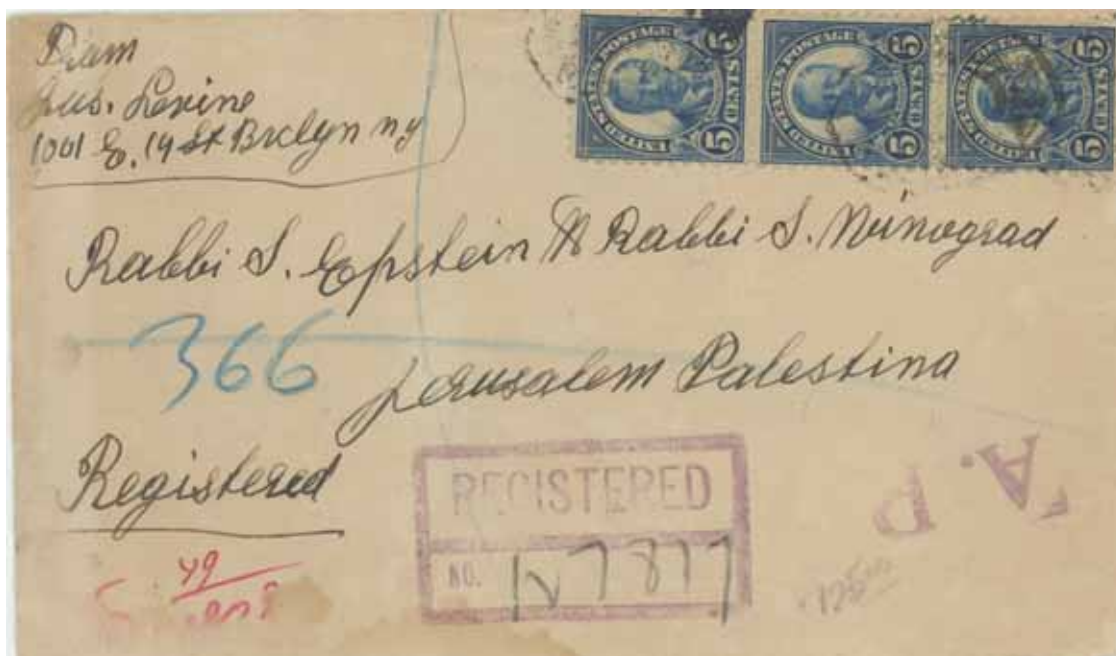 From
Jus. Levine
1001 E. 19 St Brclyn ny
UNITED STATES POSTAGE
5 CENTS 5
UNITED STATES POSTAGE
5 CENTS 5
UNITED STATES POSTAGE
5 CENTS 5
Rabbi S. Epstein & Rabbi S. Winograd
366
Jerusalem Palestina
Registered
REGISTERED
NO.
A. P
49